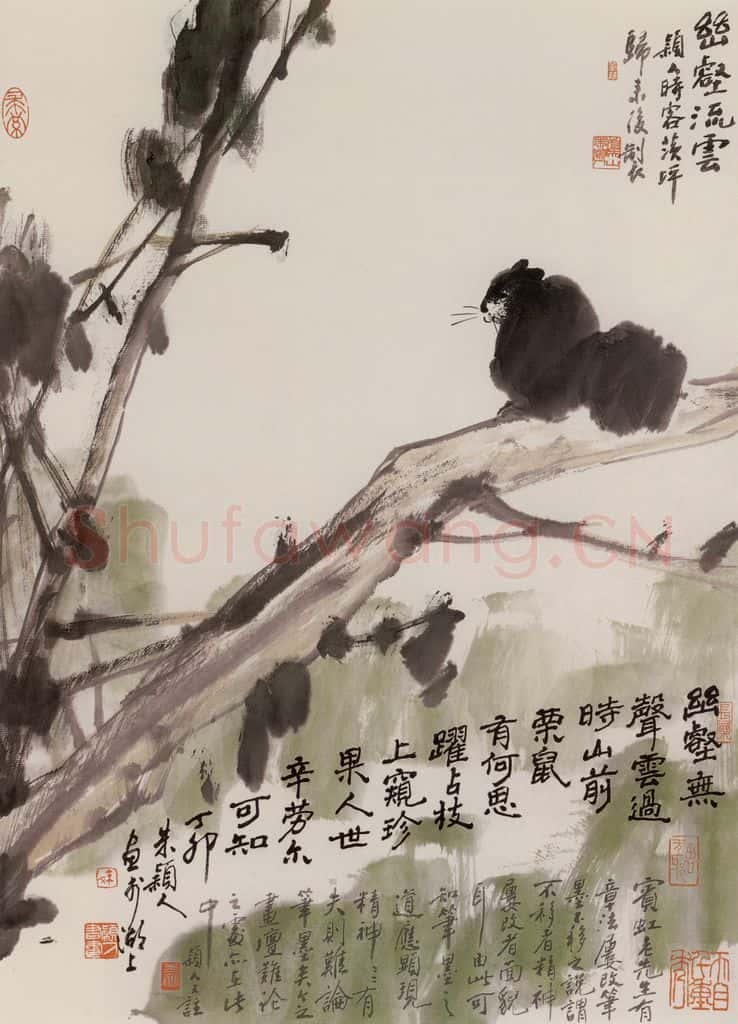 幽壑流雲
穎人時客茨坪
歸來後制於
幽壑無
聲雲過
時山前
栗鼠
有何思
躍占枝
上窺珍
果人世
辛勞尔
可知
丁卯
朱穎人
畫於湖上
賓虹老先生有
章法屢改筆
墨不移之說謂
不移者精神
屢改者面貌
耳由此可
知筆墨之
道應顯現
精神精神有
失則難論
筆墨矣今之
畫壇難論
之處亦在此
中
穎人又註
Shufawang.CN